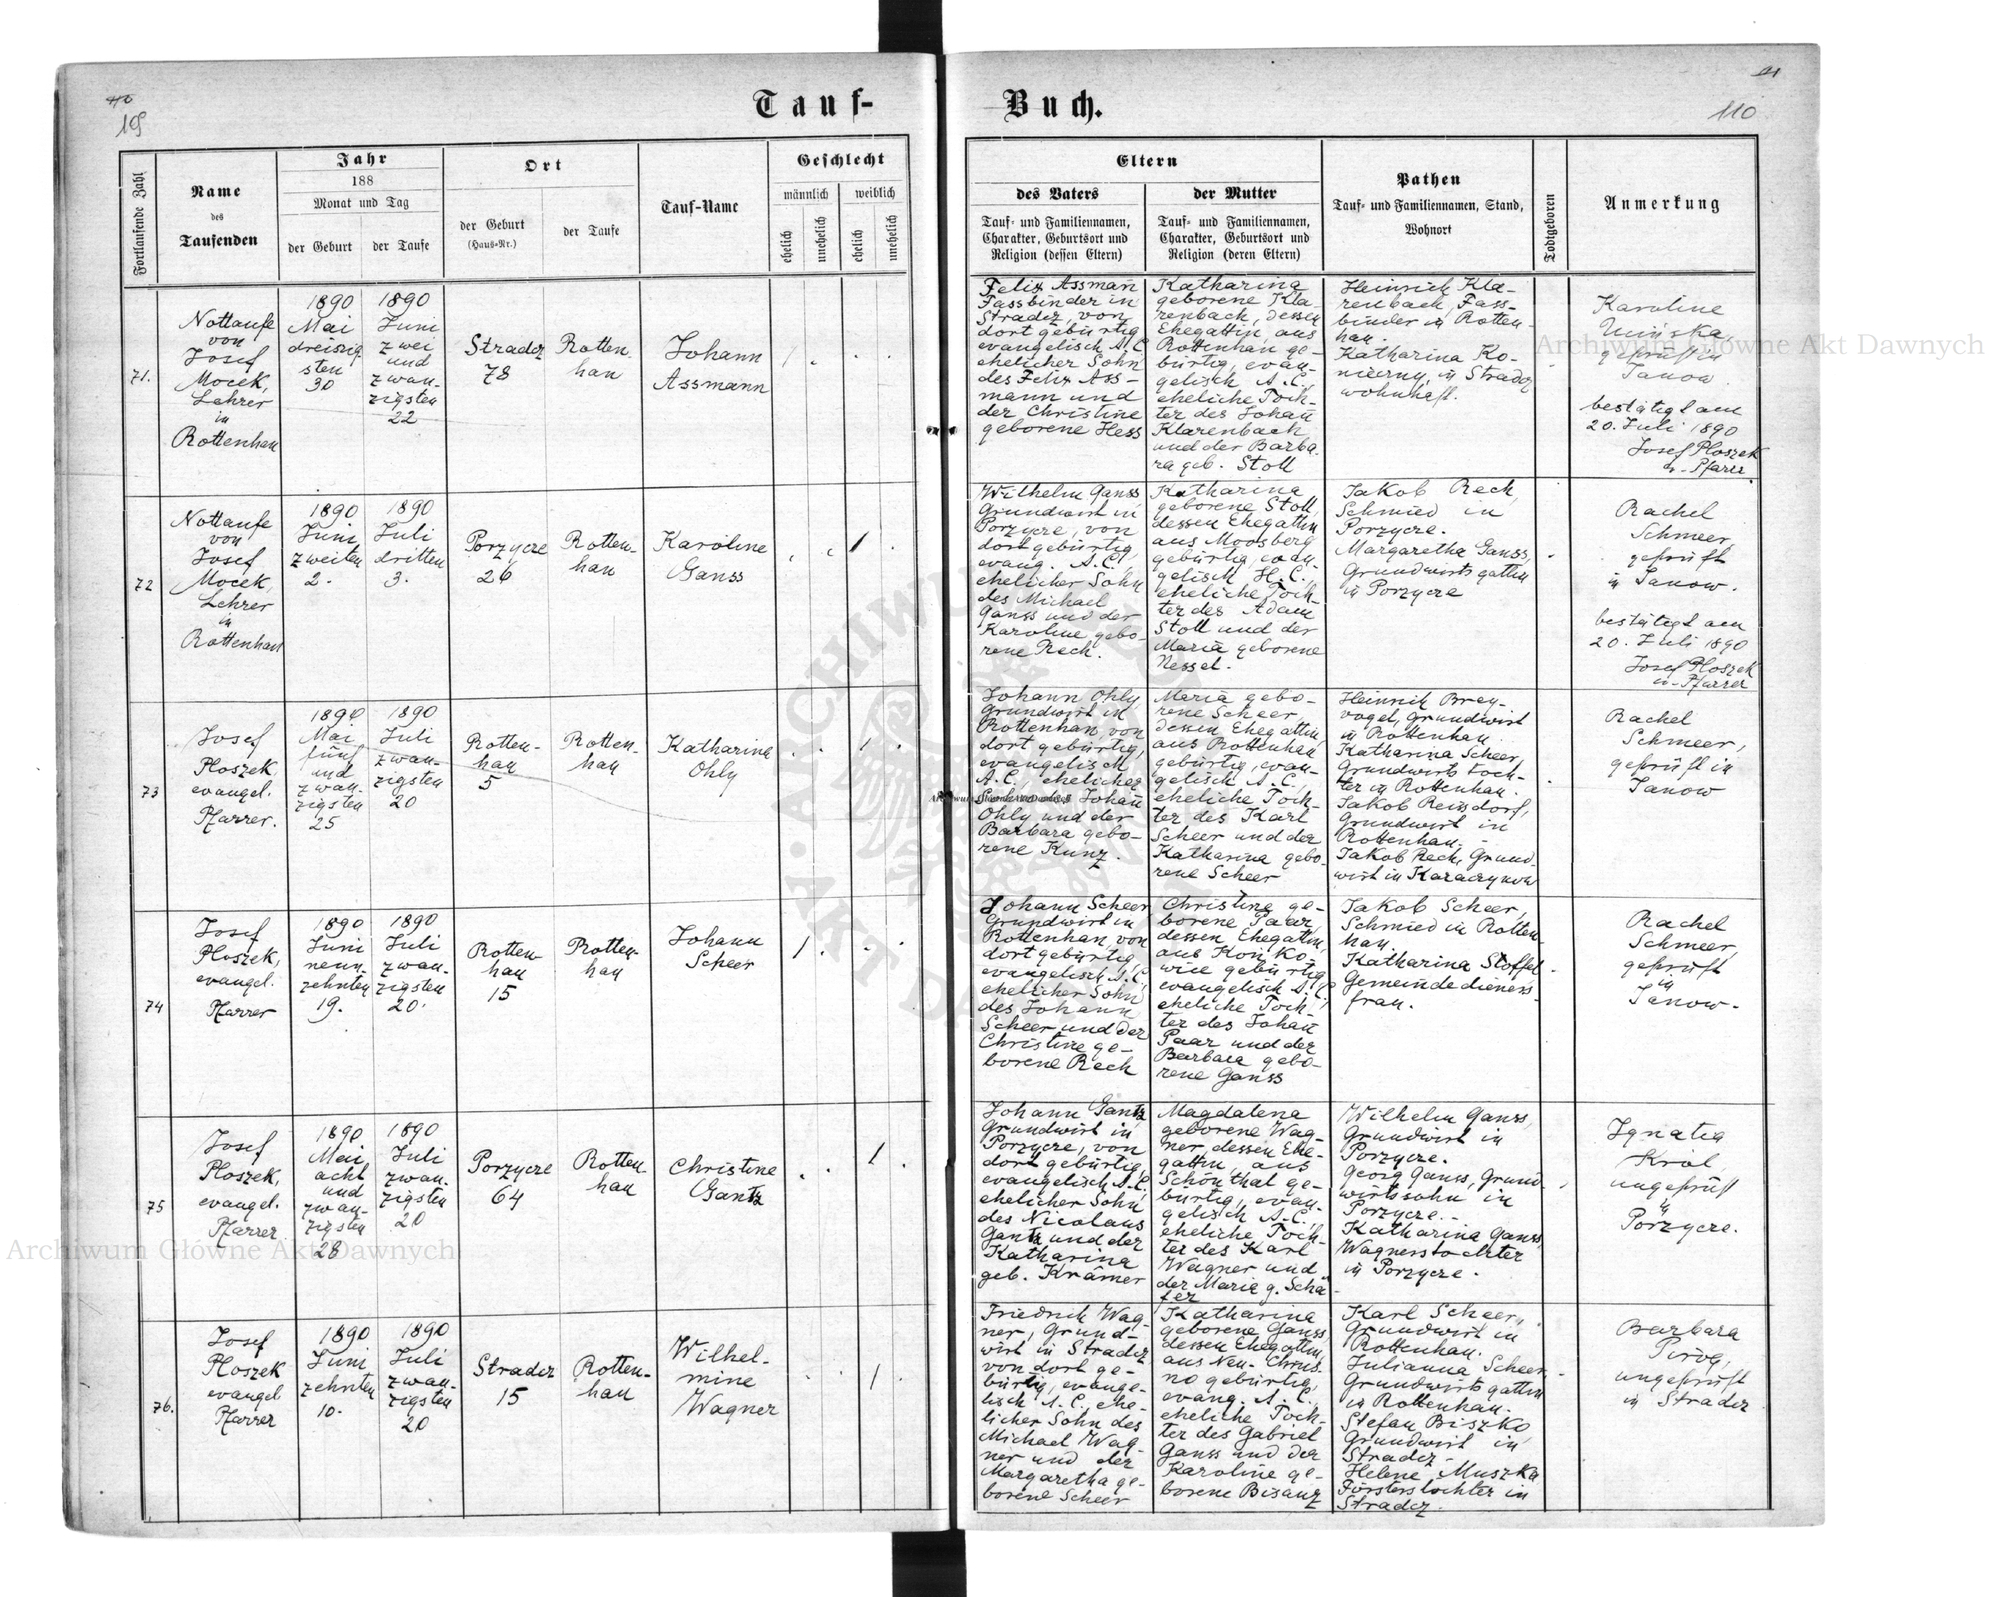 Tauf-
Buch.
19
110
Fortlaufende Zahl
Name
des
Taufenden
Jahr
188
Monat und Tag
der Geburt
der Taufe
Ort
der Geburt
(Haus=Nr.)
der Taufe
Tauf=Name
Geschlecht
männlich
weiblich
ehelich
unehelich
ehelich
unehelich
Eltern
des Vaters
Tauf= und Familiennamen,
Charakter, Geburtsort und
Religion (dessen Eltern)
der Mutter
Tauf= und Familiennamen,
Charakter, Geburtsort und
Religion (deren Eltern)
Pathen
Tauf= und Familiennamen, Stand,
Wohnort
Todtgeboren
Anmerkung
71.
Nottaufe
von
Josef
Mocek,
Lehrer
in
Rottenhan
1890
Mai
dreizig
sten
30
1890
Juni
zwei
und
zwan-
zigsten
22
Stradcz
78
Rotten
han
Johann
Assmann
Felix Assman
Fassbinder in
Stradcz, von
dort gebürtig
evangelisch A.C.
ehelicher Sohn
des Felix Ass-
mann und
der Christine
geborene Hess
Katharina
geborene Kla-
renbach, dessen
Ehegattin, aus
Rottenhan ge-
bürtig, evan-
gelisch A.C.,
eheliche Toch-
ter des Johan̄
Klarenbach
und der Barba-
ra geb. Stoll
Heinrich Kla-
renbach, Fass-
binder in Rotten-
han.
Katharina Ko-
nierny, in Stradcz
wohnhaft.
Karoline
geprüft in
Janow
bestätigt am
20. Juli 1890
Josef Ploszek
Pfarrer
72
Nottaufe
von
Josef
Mocek,
Lehrer
in
Rottenhan
1890
Juni
zweiten
2.
1890
Juli
dritten
3.
Porzycze
26
Rotten-
han
Karoline
Ganss
Wilhelm Ganss
Grundwirt in
Porzycze, von
dort gebürtig,
evang. A.C.,
ehelicher Sohn
des Michael
Ganss und der
Karoline gebo-
rene Rech.
Katharina
geborene Stoll,
dessen Ehegattin
aus Moosberg
gebürtig, evan-
gelisch H.C.,
eheliche Toch-
ter des Adam
Stoll und der
Maria geborene
Nessel.
Jakob Rech,
Schmied in
Porzycze.
Margaretha Ganss,
Grundwirts gattin
in Porzycze
Rachel
Schmeer,
geprüft
in Janow.
bestätigt am
20. Juli 1890
Josef Ploszek
Pfarrer
73
Josef
Ploszek,
evangel.
Pfarrer.
1890
Mai
fünf
und
zwan-
zigsten
25
1890
Juli
zwan-
zigsten
20
Rotten-
han
5
Rotten-
han
Katharina
Ohly
Johann Ohly,
Grundwirt in
Rottenhan, von
dort gebürtig,
evangelisch
A.C. ehelicher
Sohn des Johan̄
Ohly und der
Barbara gebo-
rene Kunz.
Maria gebo-
rene Scheer,
dessen Ehegattin,
aus Rottenhan
gebürtig, evan-
gelisch A.C.
eheliche Toch-
ter des Karl
Scheer und der
Katharina gebo-
rene Scheer
Heinrich Brey-
vogel, Grundwirt
in Rottenhan.
Katharina Scheer,
Grundwirts toch-
ter in Rottenhan.
Jakob Reisdorf,
Grundwirt in
Rottenhan.
Jakob Rech, Grund-
wirt in Karaczynow
Rachel
Schmeer,
geprüft in
Janow
74
Josef
Ploszek,
evangel.
Pfarrer
1890
Juni
neun-
zehnten
19.
1890
Juli
zwan-
zigsten
20.
Rotten-
han
15
Rotten-
han
Johann
Scheer
Johann Scheer
Grundwirt in
Rottenhan von
dort gebürtig,
evangelisch A.C.
ehelicher Sohn
des Johann
Scheer und der
Christine ge-
borene Rech
Christine ge-
borene Paar,
dessen Ehegattin,
aus Konko-
wice gebürtig
evangelisch A.C.
eheliche Toch-
ter des Johan̄
Paar und der
Barbara gebo-
rene Ganss
Jakob Scheer,
Schmied in Rotten-
han.
Katharina Stoffel
Gemeindedieners-
frau.
Rachel
Schmeer,
geprüft
in
Janow.
75
Josef
Ploszek,
evangel.
Pfarrer
1890
Mai
acht
und
zwan-
zigsten
28
1890
Juli
zwan-
zigsten
20
Porzycze
64
Rotten-
han
Christine
Gantz
Johann Gantz
Grundwirt in
Porzycze, von
dort gebürtig,
evangelisch A.C.
ehelicher Sohn
des Nicolaus
Gantz und der
Katharina
geb. Krämer
Magdalena
geborene Wag-
ner, dessen Ehe-
gattin, aus
Schönthal ge-
bürtig, evan-
gelisch A.C.,
eheliche Toch-
ter des Karl
Wagner und
der Maria g. Schä-
fer
Wilhelm Ganss,
Grundwirt in
Porzycze.
Georg Ganss, Grund-
wirtssohn in
Porzycze.
Katharina Ganss
Wagnerstochter
in Porzycze.
Ignatia
Król
ungeprüft
in
Porzycze.
76.
Josef
Ploszek
evangel
Pfarrer
1890
Juni
zehnten
10.
1890
Juli
zwan-
zigsten
20
Stradcz
15
Rotten-
han
Wilhel-
mine
Wagner
Friedrich Wag-
ner, Grund-
wirt in Stradcz
von dort ge-
bürtig, evange-
lisch A.C., ehe-
licher Sohn des
Michael Wag-
ner und der
Margaretha ge-
borene Scheer
Katharina
geborene Ganss
dessen Ehegattin,
aus Neu-Chrus-
no gebürtig
evang. A.C.
eheliche Toch-
ter des Gabriel
Ganss und der
Karoline ge-
borene Bisanz
Karl Scheer,
Grundwirt in
Rottenhan.
Julianna Scheer
Grundwirts gattin
in Rottenhan.
Stefan Biszko
Grundwirt in
Stradcz.
Helene Muszka
Försterstochter in
Stradcz.
Barbara
Piróg,
ungeprüft
in Stradcz
Archiwum Główne Akt Dawnych
Archiwum Główne Akt Dawnych
Archiwum Główne Akt Dawnych